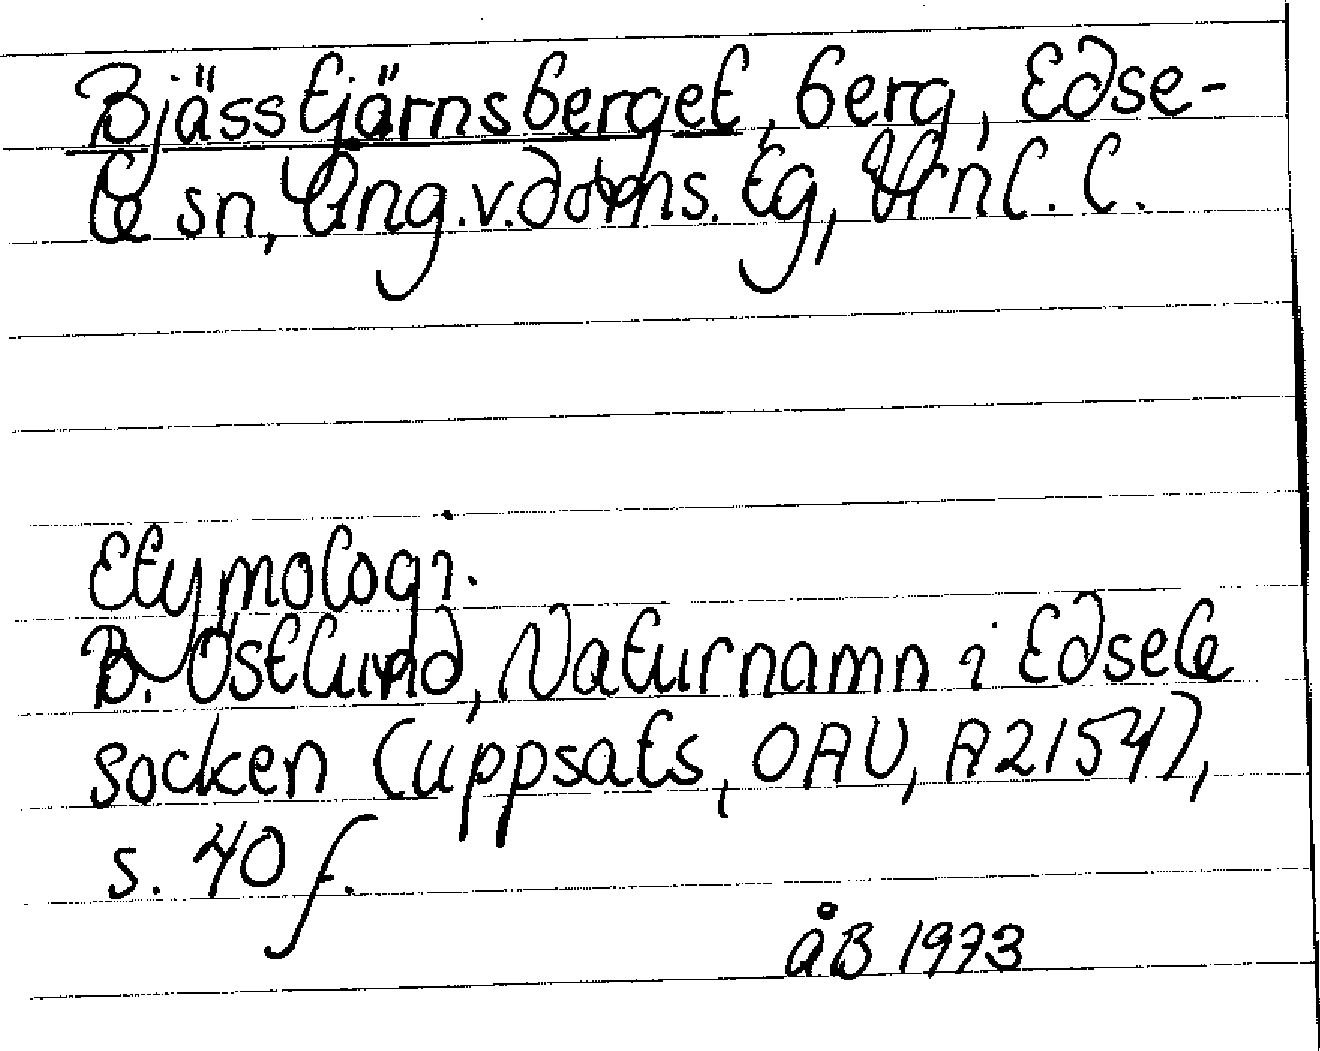 Bjässtjärnsberget, berg, Edse-
le sn, Ång.v. doms. tg, Vrnl. l.
Etymologi.
B. Östlund, Naturnamn i Edsele
socken (uppsats, OAU, A2154),
s. 40 f.
åB 1973